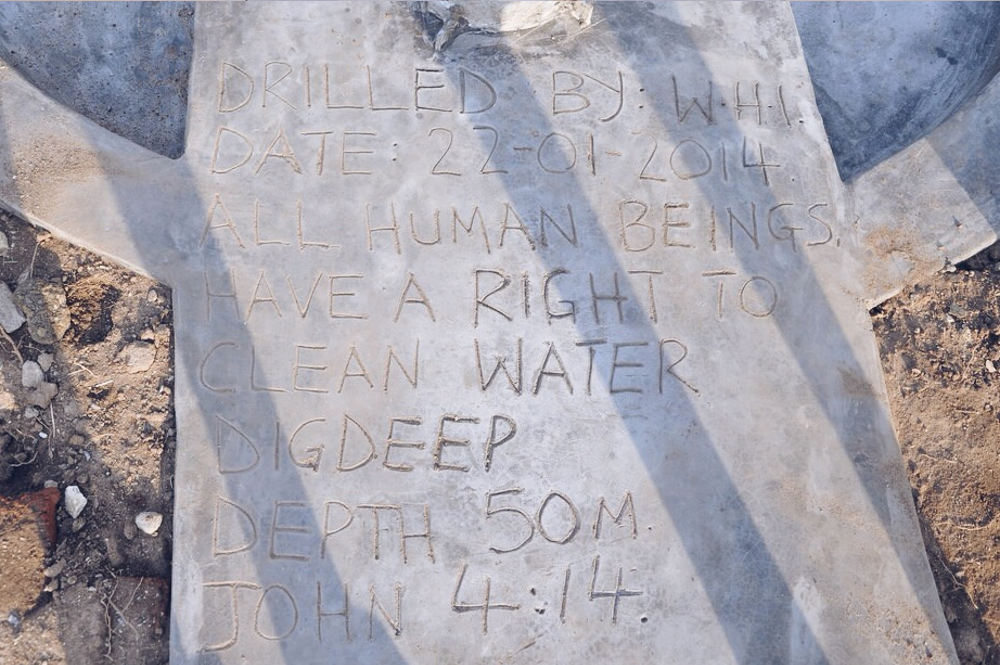 DRILLED BY: W.H.I.
DATE: 22-01-2014
ALL HUMAN BEINGS.
HAVE A RIGHT TO
CLEAN WATER
DIGDEEP
DEPTH 50M.
JOHN 4:14